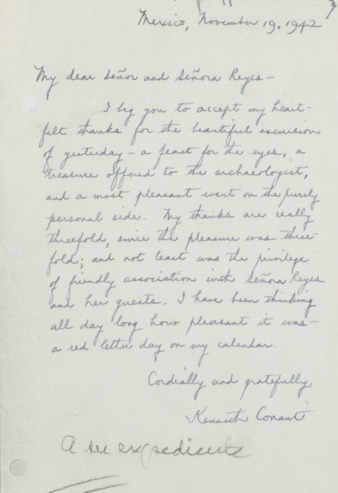 Mexico, November 19, 1942
My dear Señor and Señora Reyes—
I beg you to accept my heart-
felt thanks for the beautiful excursion
of yesterday — a feast for the eyes, a
treasure offered to the archaeologist,
and a most pleasant event on the purely
personal side. My thanks are really
threefold, since the pleasure was three-
fold; and not least was the privilege
of friendly association with Señora Reyes
and her guests. I have been thinking
all day long how pleasant it was—
a red letter day on my calendar.
Cordially and gratefully
Kenneth Conant
A su expediente